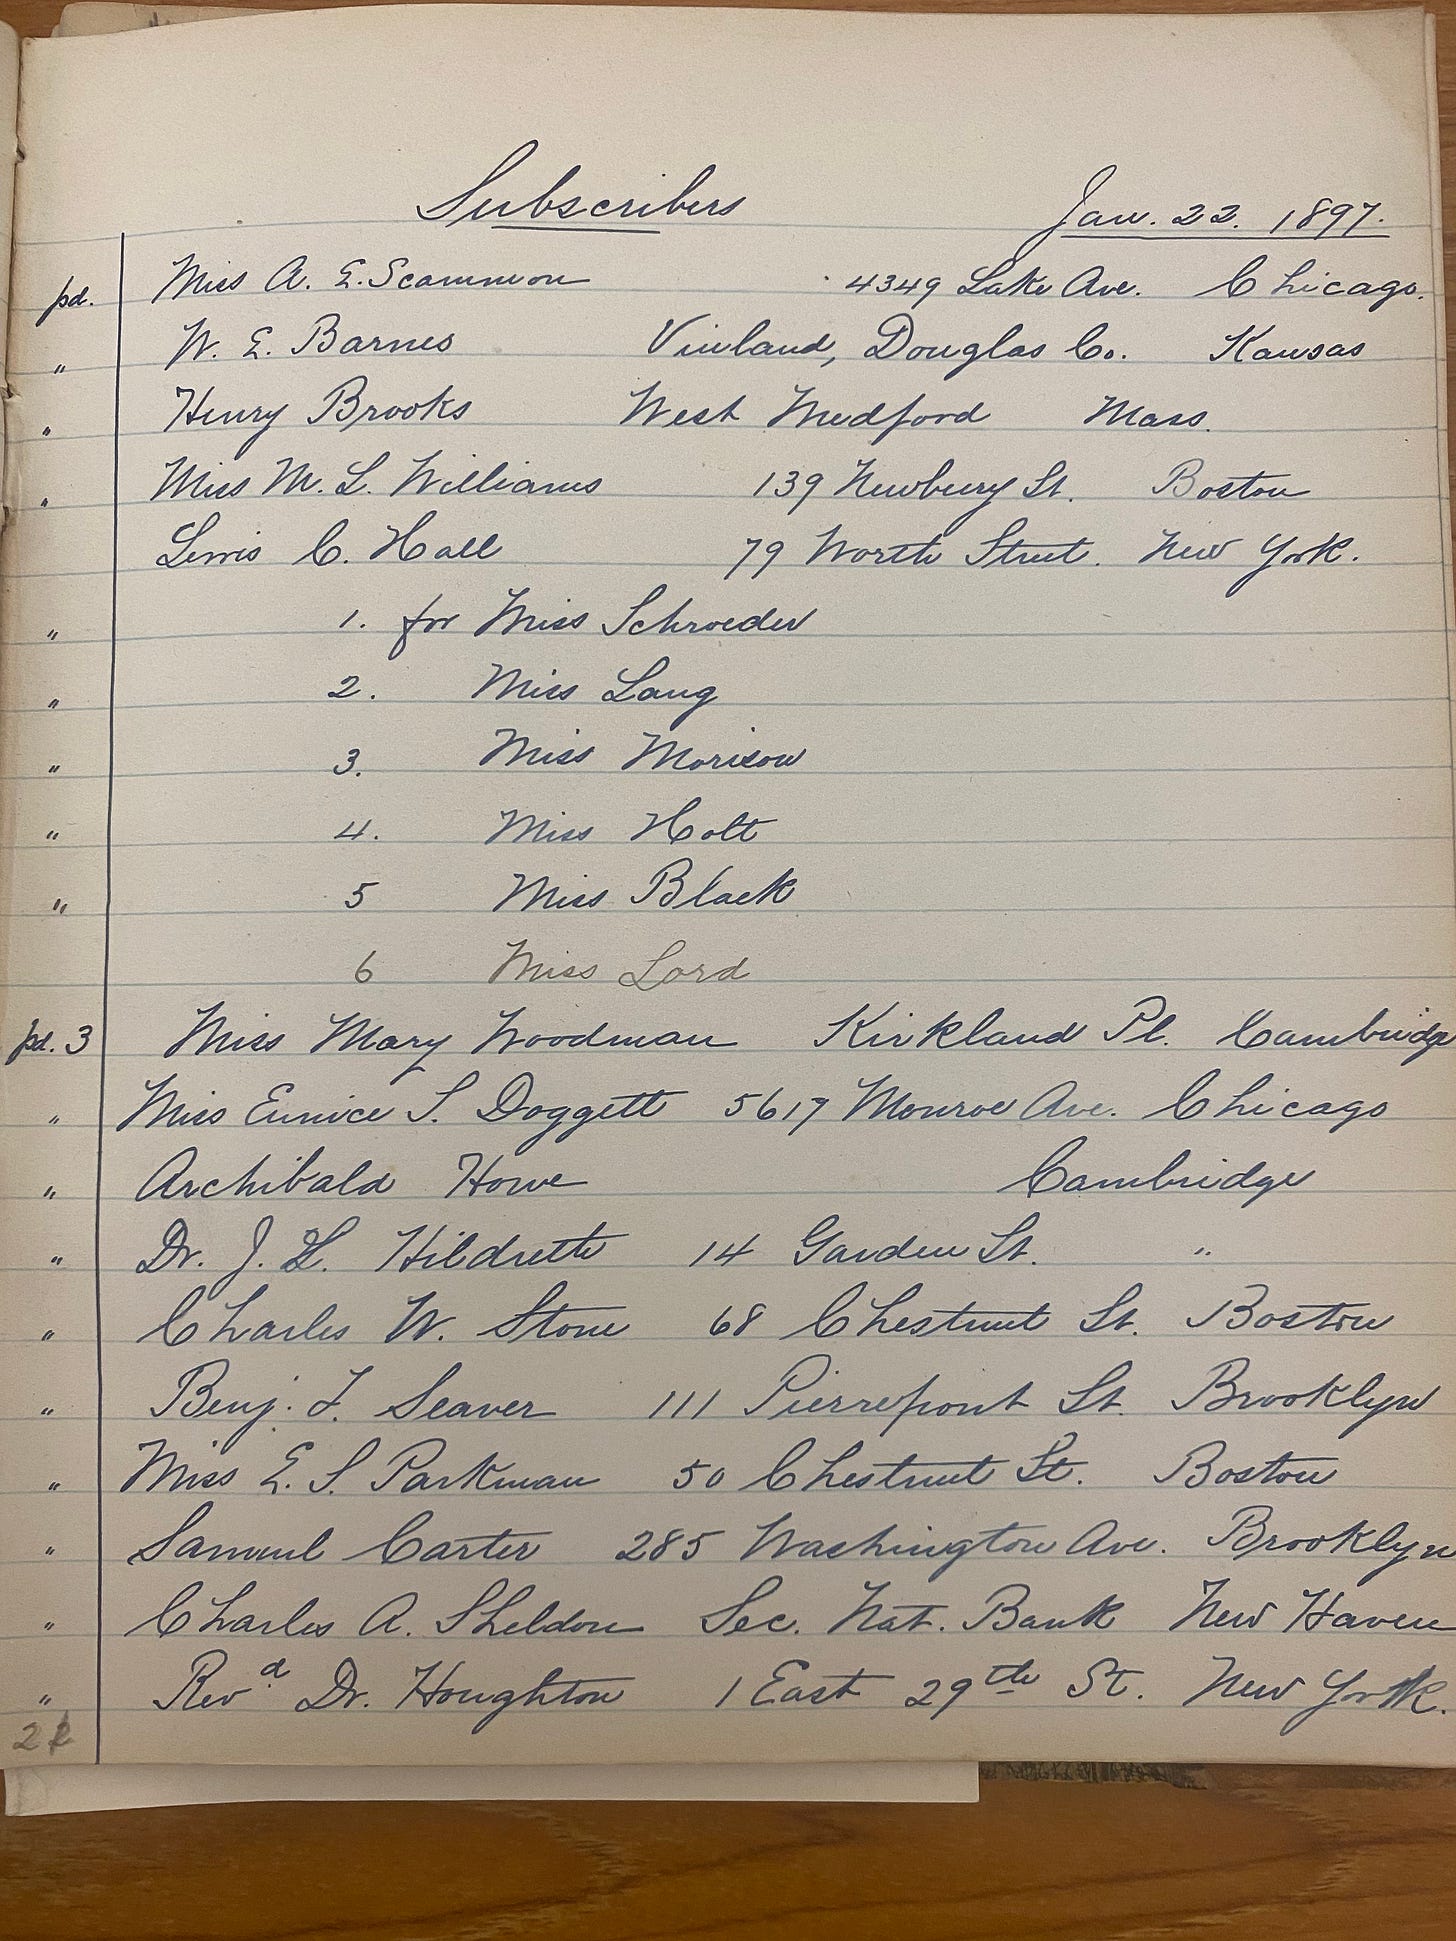 Subscribers Jan. 22. 1897.
pd. Miss A. E. Scammon 4349 Lake Ave. Chicago.
" W. E. Barnes Vinland, Douglas Co. Kansas
" Henry Brooks West Medford Mass.
" Miss M. L. Williams 139 Newbury St. Boston
Lewis C. Hall 79 Worth Street. New York.
" 1. for Miss Schroeder
" 2. Miss Lang
" 3. Miss Morison
" 4. Miss Holt
" 5 Miss Black
6 Miss Lord
pd. 3 Miss Mary Woodman Kirkland Pl. Cambridge
" Miss Eunice S. Doggett 5617 Monroe Ave. Chicago
" Archibald Howe Cambridge
" Dr. J. L. Hildreth 14 Garden St. "
" Charles W. Stone 68 Chestnut St. Boston
" Benj. F. Seaver 111 Pierrepont St. Brooklyn
" Miss E. S. Parkman 50 Chestnut St. Boston
" Samuel Carter 285 Washington Ave. Brooklyn
" Charles A. Sheldon Sec. Nat. Bank New Haven
" Revd. Dr. Houghton 1 East 29th St. New York.